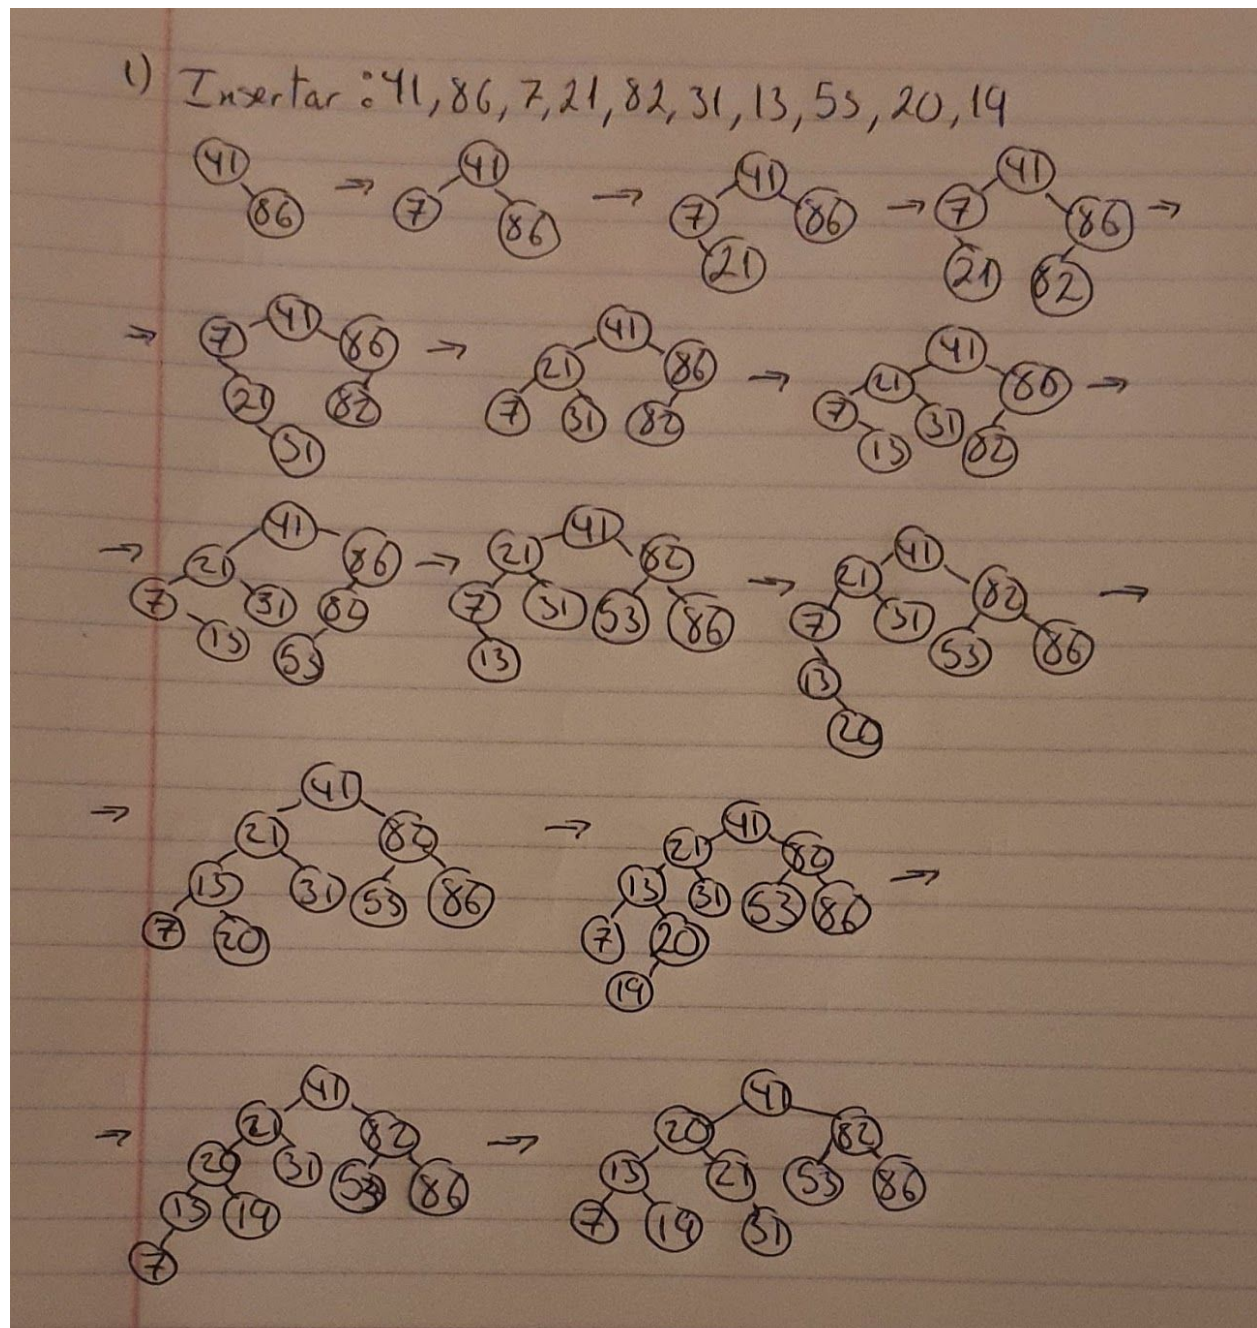 1) Insertar: 41, 86, 7, 21, 82, 31, 13, 53, 20, 19
41
86
→
41
7 86
→
41
7 86
21
→
41
7 86
21 82
→
→
41
7 86
21 82
31
→
41
21 86
7 31 82
→
41
21 86
7 31 82
13
→
→
41
21 86
7 31 82
13 53
→
41
21 82
7 31 53 86
13
→
41
21 82
7 31 53 86
13
20
→
→
41
21 82
13 31 53 86
7 20
→
41
21 82
13 31 53 86
7 20
19
→
→
41
21 82
20 31 53 86
13 19
7
→
41
20 82
13 21 53 86
7 19 31